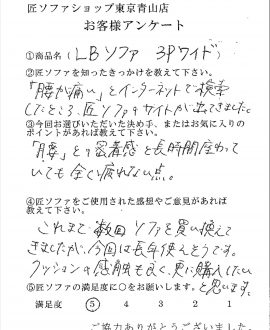 匠ソファショップ東京青山店
お客様アンケート
①商品名(LBソファ 3Pワイド)
②匠ソファを知ったきっかけを教えて下さい。
「腰が痛い」とインターネットで検索
したところ、匠ソファのサイトが出てきました。
③今回お選びいただいた決め手、またはお気に入りの
ポイントがあれば教えて下さい。
「腰」との密着感と長時間座って
いても全く疲れない点。
④匠ソファをご使用された感想やご意見があれば
教えて下さい。
これまで数回ソファを買い換えて
きましたが、今回は長年使えそうです。
クッションの感触も良く、更に購入したい
⑤匠ソファの満足度に○をお願いします。と思います。
満足度 ⑤ 4 3 2 1
ご協力ありがとうございました。